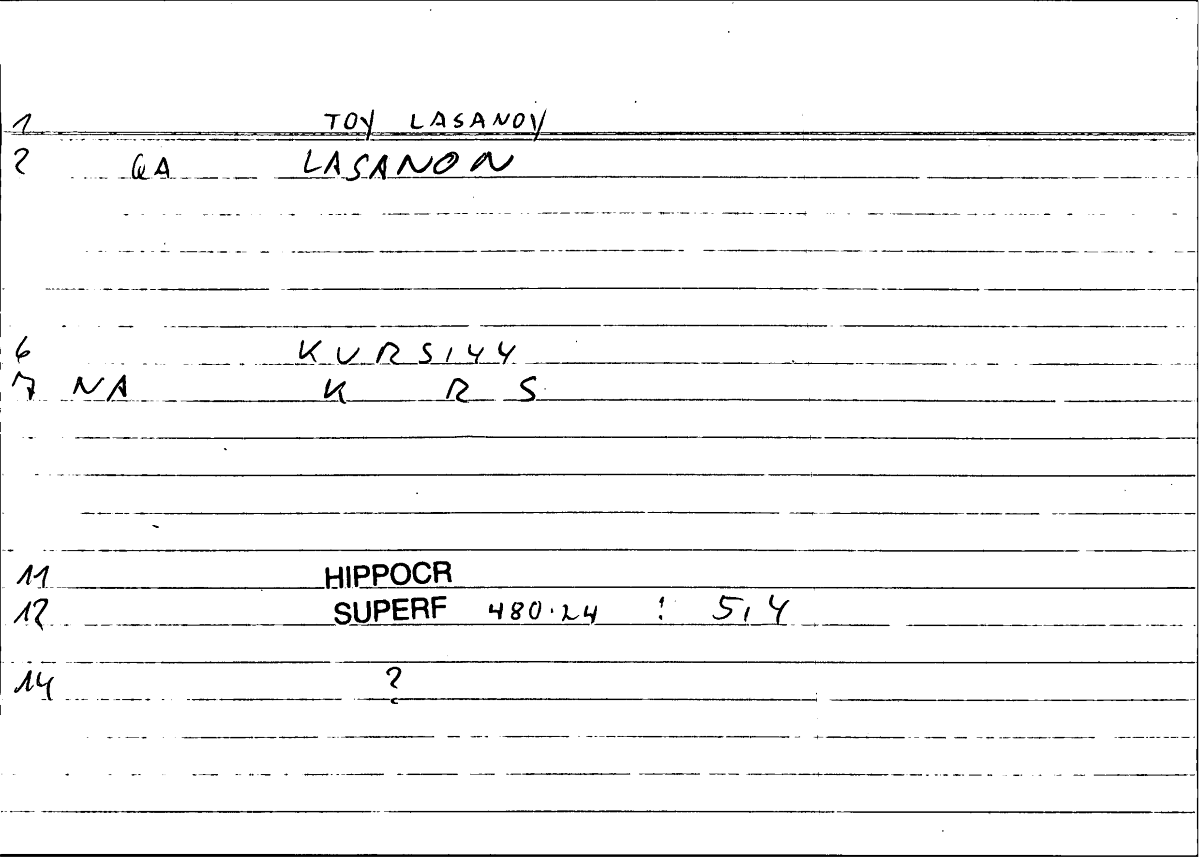 1 TOY LASANOY
2 QA LASANON
6 KURSIYY
7 NA K R S
11 HIPPOCR
12 SUPERF 480.24 : 5,4
14 ?